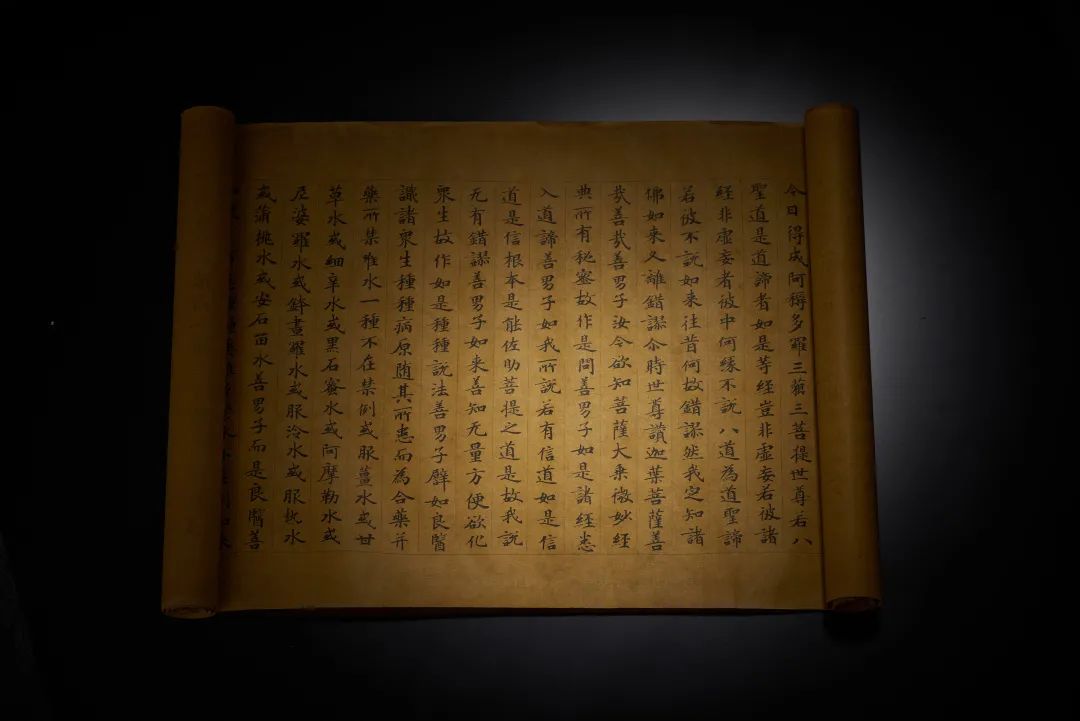 今日得成阿耨多羅三藐三菩提世尊若八
聖道是道諦者如是等經豈非虛妄若彼諸
經非虛妄者彼中何緣不說八道為道聖諦
若彼不說如來往昔何故錯謬然我定知諸
佛如來久離錯謬尒時世尊讚迦葉菩薩善
哉善哉善男子汝今欲知菩薩大乘微妙經
典所有秘密故作是問善男子如是諸經悉
入道諦善男子如我所說若有信道如是信
道是信根本是能佐助菩提之道是故我說
无有錯謬善男子如來善知无量方便欲化
眾生故作如是種種說法善男子譬如良醫
識諸眾生種種病原随其所患而為合藥并
藥所禁唯水一種不在禁例或服薑水或甘
草水或細辛水或黑石蜜水或阿摩勒水或
尼婆羅水或鉢晝羅水或服泠水或服水
或蒲桃水或安石畄水善男子而是良醫善